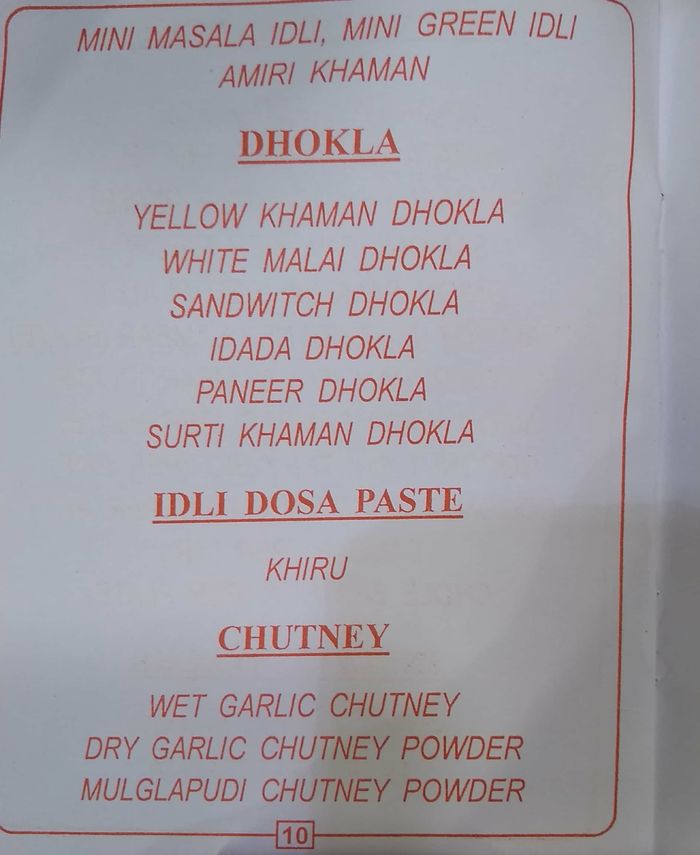 MINI MASALA IDLI, MINI GREEN IDLI
AMIRI KHAMAN
DHOKLA
YELLOW KHAMAN DHOKLA
WHITE MALAI DHOKLA
SANDWITCH DHOKLA
IDADA DHOKLA
PANEER DHOKLA
SURTI KHAMAN DHOKLA
IDLI DOSA PASTE
KHIRU
CHUTNEY
WET GARLIC CHUTNEY
DRY GARLIC CHUTNEY POWDER
MULGLAPUDI CHUTNEY POWDER
10